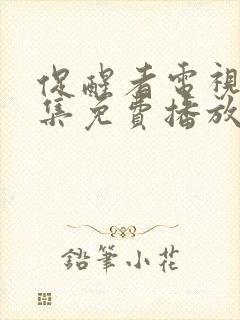 促醒者電視
集免費播放
鉛筆小花